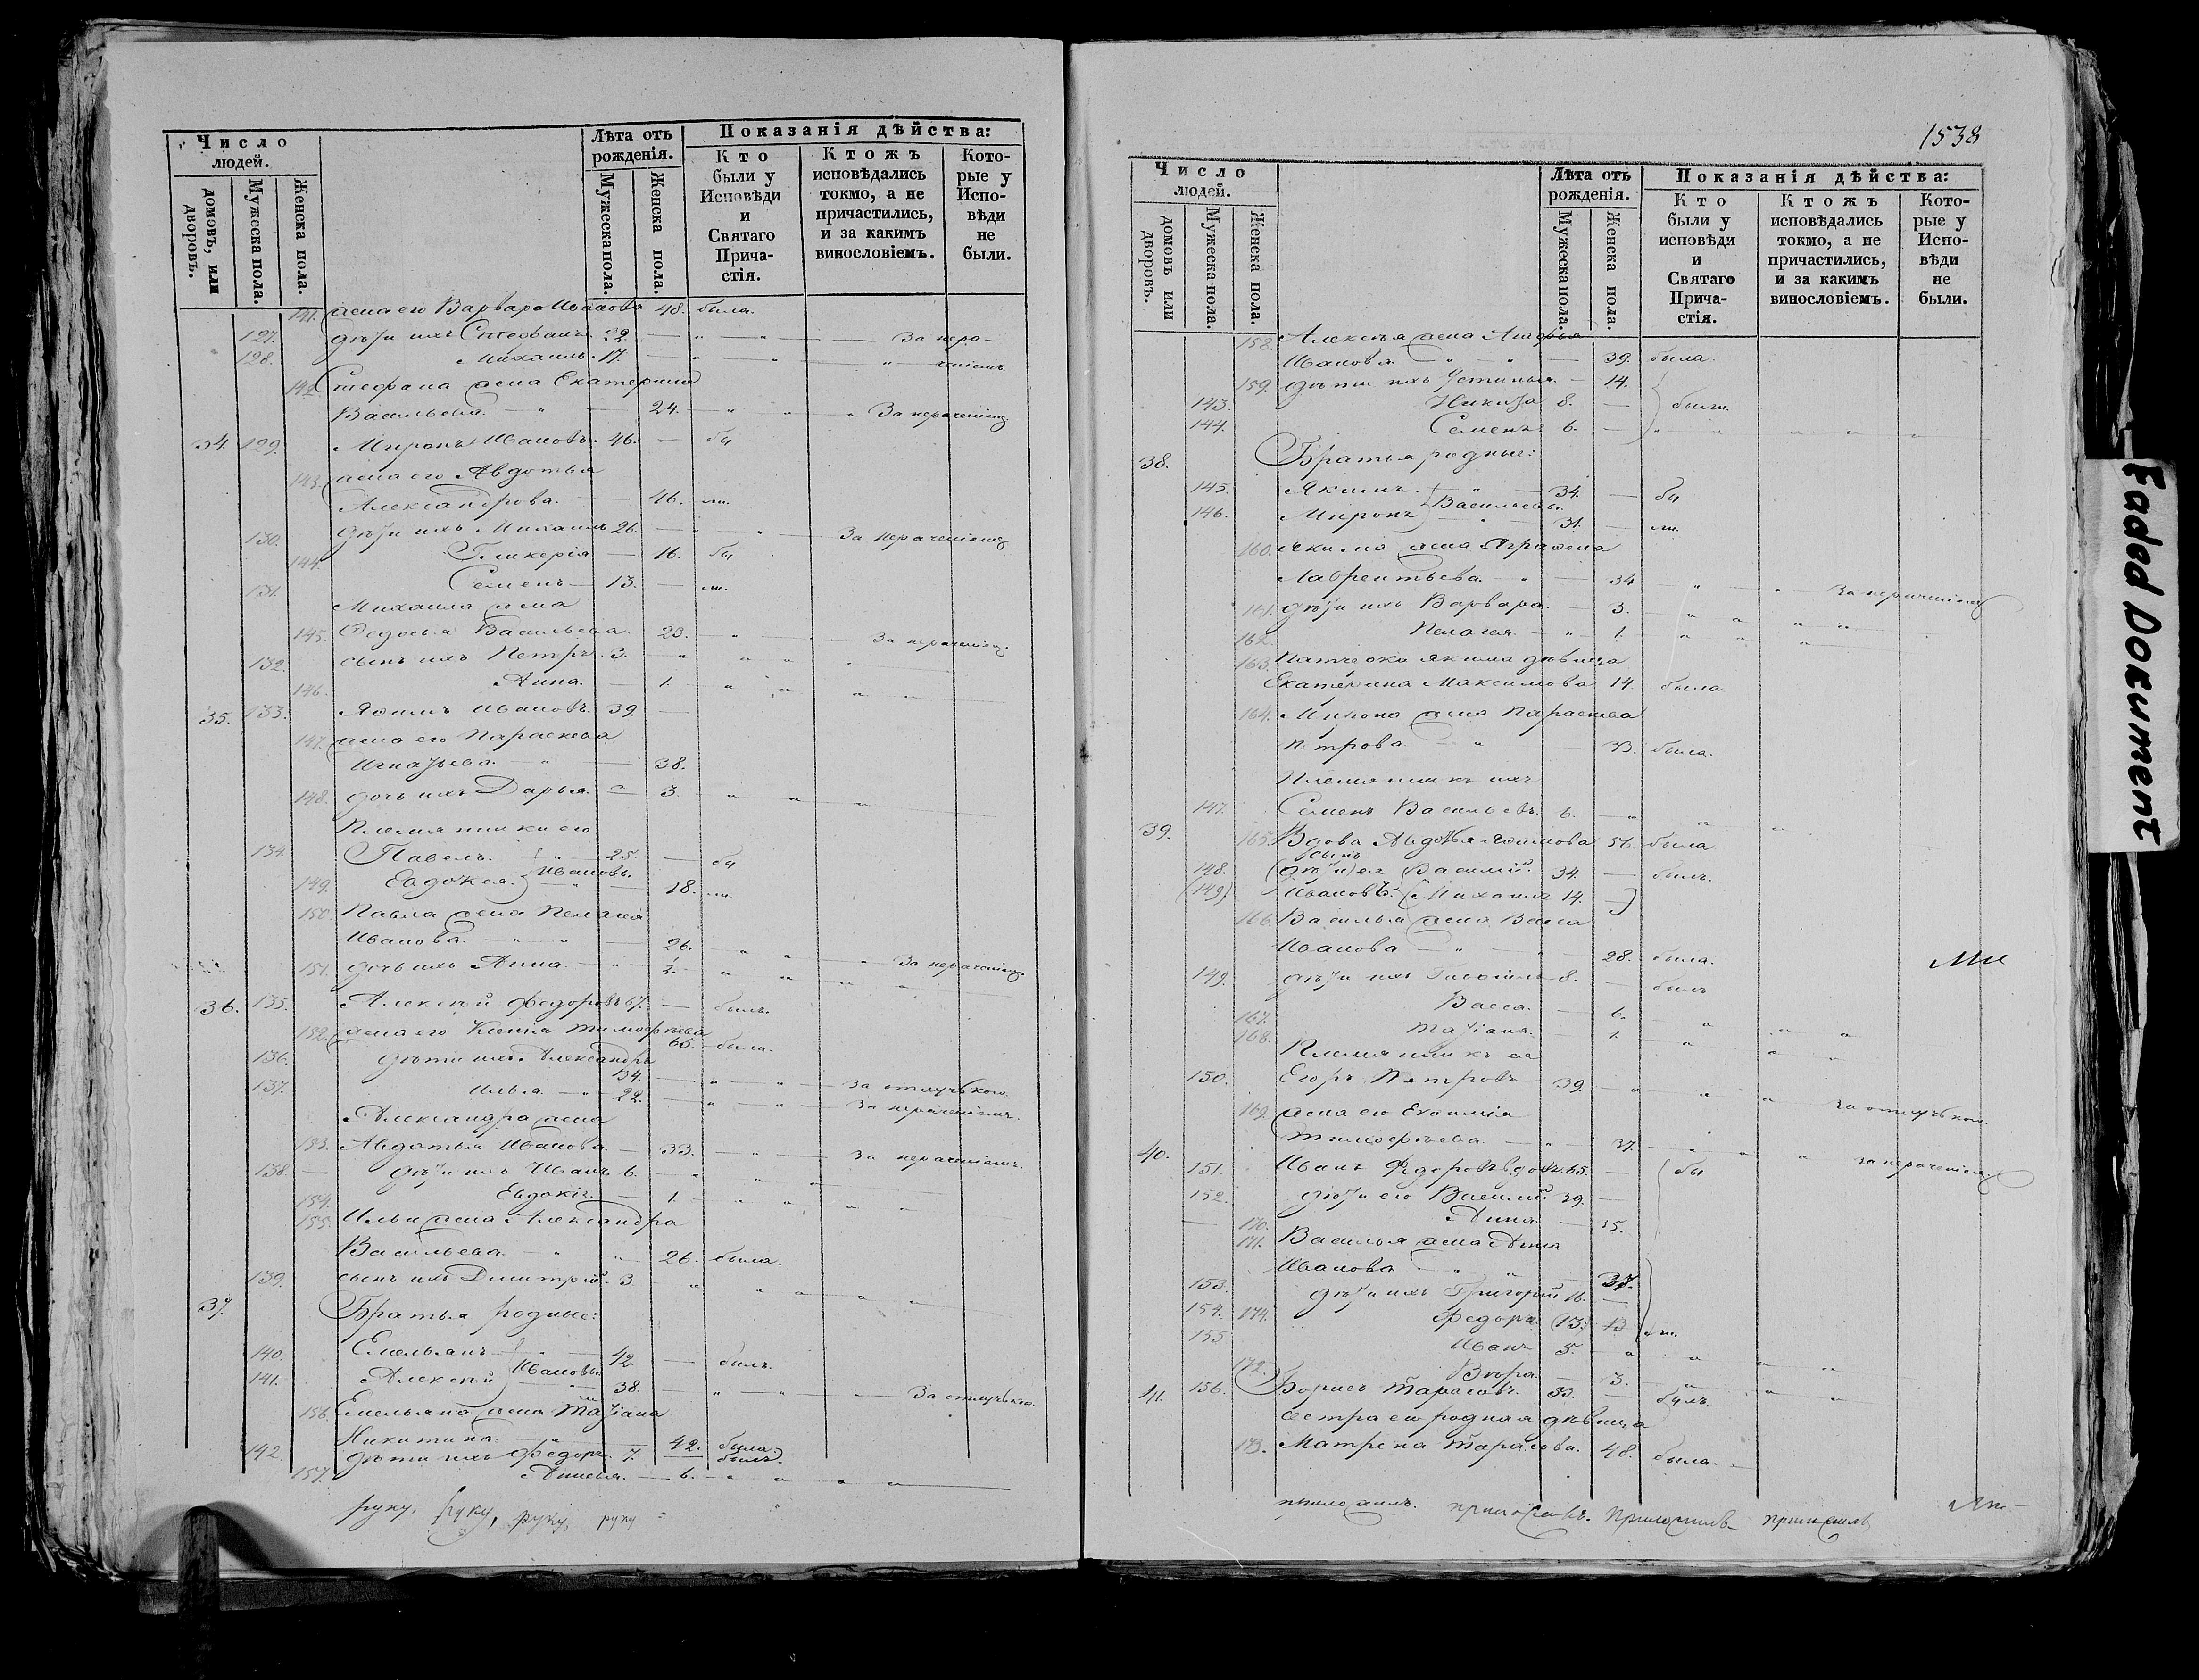 Число людей.
домовъ, или дворовъ.
Мужеска пола.
Женска пола.
Лѣта отъ рожденія.
Мужеска пола.
Женска пола.
Показанія дѣйства:
Кто были у Исповѣди и Святаго Прича-стія.
Ктожъ исповѣдались токмо, а не причастились, и за какимъ винословіемъ.
Кото-рые у Испо-вѣди не были.
141. жена его Варвара Иванова 48. была.
127. дѣти ихъ Стефанъ. 22. За нера-
128. Михаилъ. 17. ченіемъ
142. Стефана жена Екатерина
Васильева. 24. За нераченіемъ
34. 129. Миронъ Ивановъ. 46. бы
143. жена его Авдотья
Александрова. 46. ли.
130. дѣти ихъ Михаилъ 26. За нераченіемъ
144. Гликерія 16. бы
131. Семенъ 13. ли.
Михаила жена
145. Ѳедосья Васильева. 23. За нераченіем.
132. сынъ ихъ Петръ. 3.
146. Анна. 1.
35. 133. Яѳимъ Ивановъ. 39.
147. жена его Параскева
Игнатьева. 38.
148. дочь ихъ Дарья. 3.
Племянники его
134. Павелъ. 25. бы
Ивановы.
149. Евдокея. 18. ли.
150. Павла жена Пелагея
Иванова. 26. За нераченіем
151. дочь ихъ Анна. ½.
36. 135. Алексѣй Федоровъ 67. былъ.
152. жена его Ксенія Тимофѣева
65. была.
136. дѣти ихъ Александръ
34. За отлучкою.
137. Илья. 22. За нераченіемъ.
Александра жена
153. Авдотья Иванова. 33. За нераченіемъ.
138. дѣти ихъ Иванъ 6.
154. Евдокія. 1.
155. Ильи жена Александра
Васильева. 26. была.
139. сынъ ихъ Димитрій. 3
37. Братья родные:
140. Емельянъ 42 былъ.
Ивановы
141. Алексѣй 38. За отлучкою.
156. Емельяна жена Татіана
Никитина. 42. была.
142. дѣти ихъ Федоръ. 7. былъ.
157. Анисья. 6.
руку, руку, руку, руку
1538
Число людей.
домовъ или дворовъ.
Мужеска пола.
Женска пола.
Лѣта отъ рожденія.
Мужеска пола.
Женска пола.
Показанія дѣйства:
Кто были у исповѣди и Святаго Прича-стія.
Ктожъ исповѣдались токмо, а не причастились, и за какимъ винословіемъ.
Кото-рые у Испо-вѣди не были.
158. Алексѣя жена
Иванова 39. была.
159. дѣти ихъ Устинья. 14.
143. Никита 8. были.
144. Семенъ 6.
38. Братья родные:
145. Якимъ. 34. бы
Васильевы.
146. Миронъ 31. ли.
160. Якима жена Аграфена
Лаврентьева. 34 За нераченіемъ
161. дѣти ихъ Варвара. 3.
162. Пелагея. 1.
163. Якима дѣвица
Екатерина Максимова 14. была
164. Мирона жена Параскева
Петрова 33. была.
Племянникъ ихъ
147. Семенъ Васильевъ. 6.
39. 165. Вдова Авдотья Яѳимова 56. была.
сынъ
148. (дѣти) ея Василій. 34. былъ.
(149) Ивановъ. Михаилъ 14.
166. Василья жена Васса
Иванова 28. была.
149. дѣти ихъ 8. былъ
167. Васса. 6.
168. Татіана. 1
Племянникъ ея
150. Егоръ Петровъ 39. За отлучкою.
169. жена его Евѳимія
Тимофѣева. 37. За нераченіемъ
40. 151. Иванъ Федоровъ вдов. 65. бы
152. дѣти его Василій. 39.
170. Анна. 35.
171. Василья жена Анна
Иванова 37.
153. дѣти ихъ Григорій 16.
154. 174. Федоръ (13.) 13 ли.
155 Иванъ 5.
172. Вѣра. 3.
41. 156. Борисъ Тарасовъ. 53. былъ.
сестра его родная дѣвица
173. Матрена Тарасова. 48. была.
приложилъ. приложилъ. приложилъ приложилъ
Faded Dokument